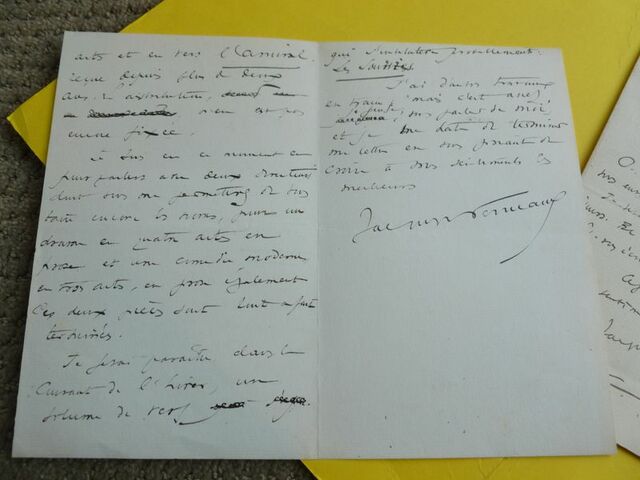 actes et en vers l'Amiral
reçue depuis plus de deux
ans. L'distribution,
n'en est pas
encore fixée.
Je suis en ce moment en
pour parlers avec deux directeurs
dont vous me permettrez de vous
taire encore les noms, pour un
drame en quatre actes en
prose et une comédie moderne
en trois actes, en prose également
Ces deux pièces sont tout à fait
terminées.
Je ferai paraître dans le
Courant de l'hiver, un
volume de vers
qui s'intitulera
Les Sourires
J'ai d'autres travaux
en train, mais c'est assez,
je pense, vous parler de moi,
et je me hâte de terminer
ma lettre en vous priant de
croire à mes sentiments les
meilleurs
Jacques Normand